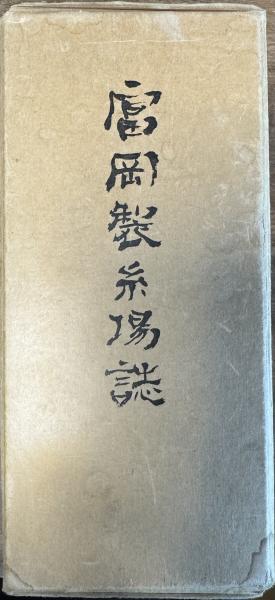 富岡製糸場誌